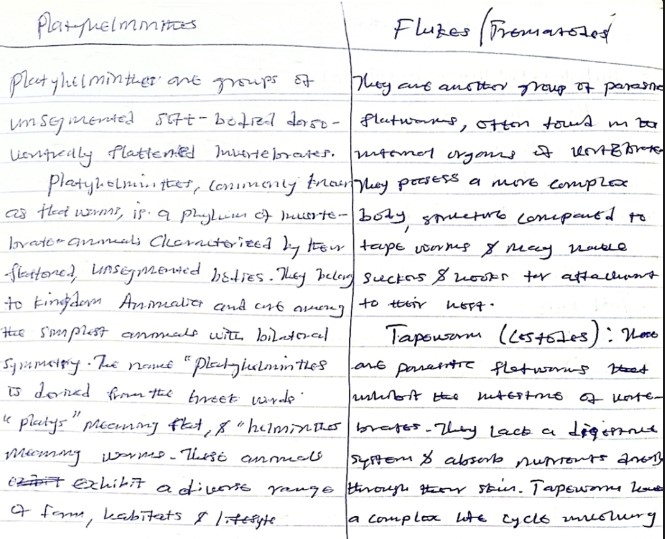 Platyhelminthes
Platyhelminthes are groups of
unsegmented soft-bodied dorso-
ventrally flattented Invertebrates.
Platyhelminthes, commonly known
as flat worms, is a phylum of inverte-
brate animals characterized by their
flattened, unsegmented bodies. They belong
to kingdom Animalia and are among
the simplest animals with bilateral
symmetry. The name "Platyhelminthes
is derived from the Greek words
"platys" meaning flat, & "helminthes
meaning worms. These animals
exhibit a diverse range
of form, habitats & lifestyle
Flukes/(Trematodes)
They are another group of parasitic
flatworms, often found in the
internal organs of vertebrates
They possess a more complex
body, structure compared to
tape worms & may have
suckers & hooks for attachment
to their host.
Tapeworm (Cestodes): These
are parasitic flatworms that
inhibit the intestine of verte-
brates. They lack a digestive
system & absorb nutrients directly
through their skin. Tapeworms have
a complex life cycle involving